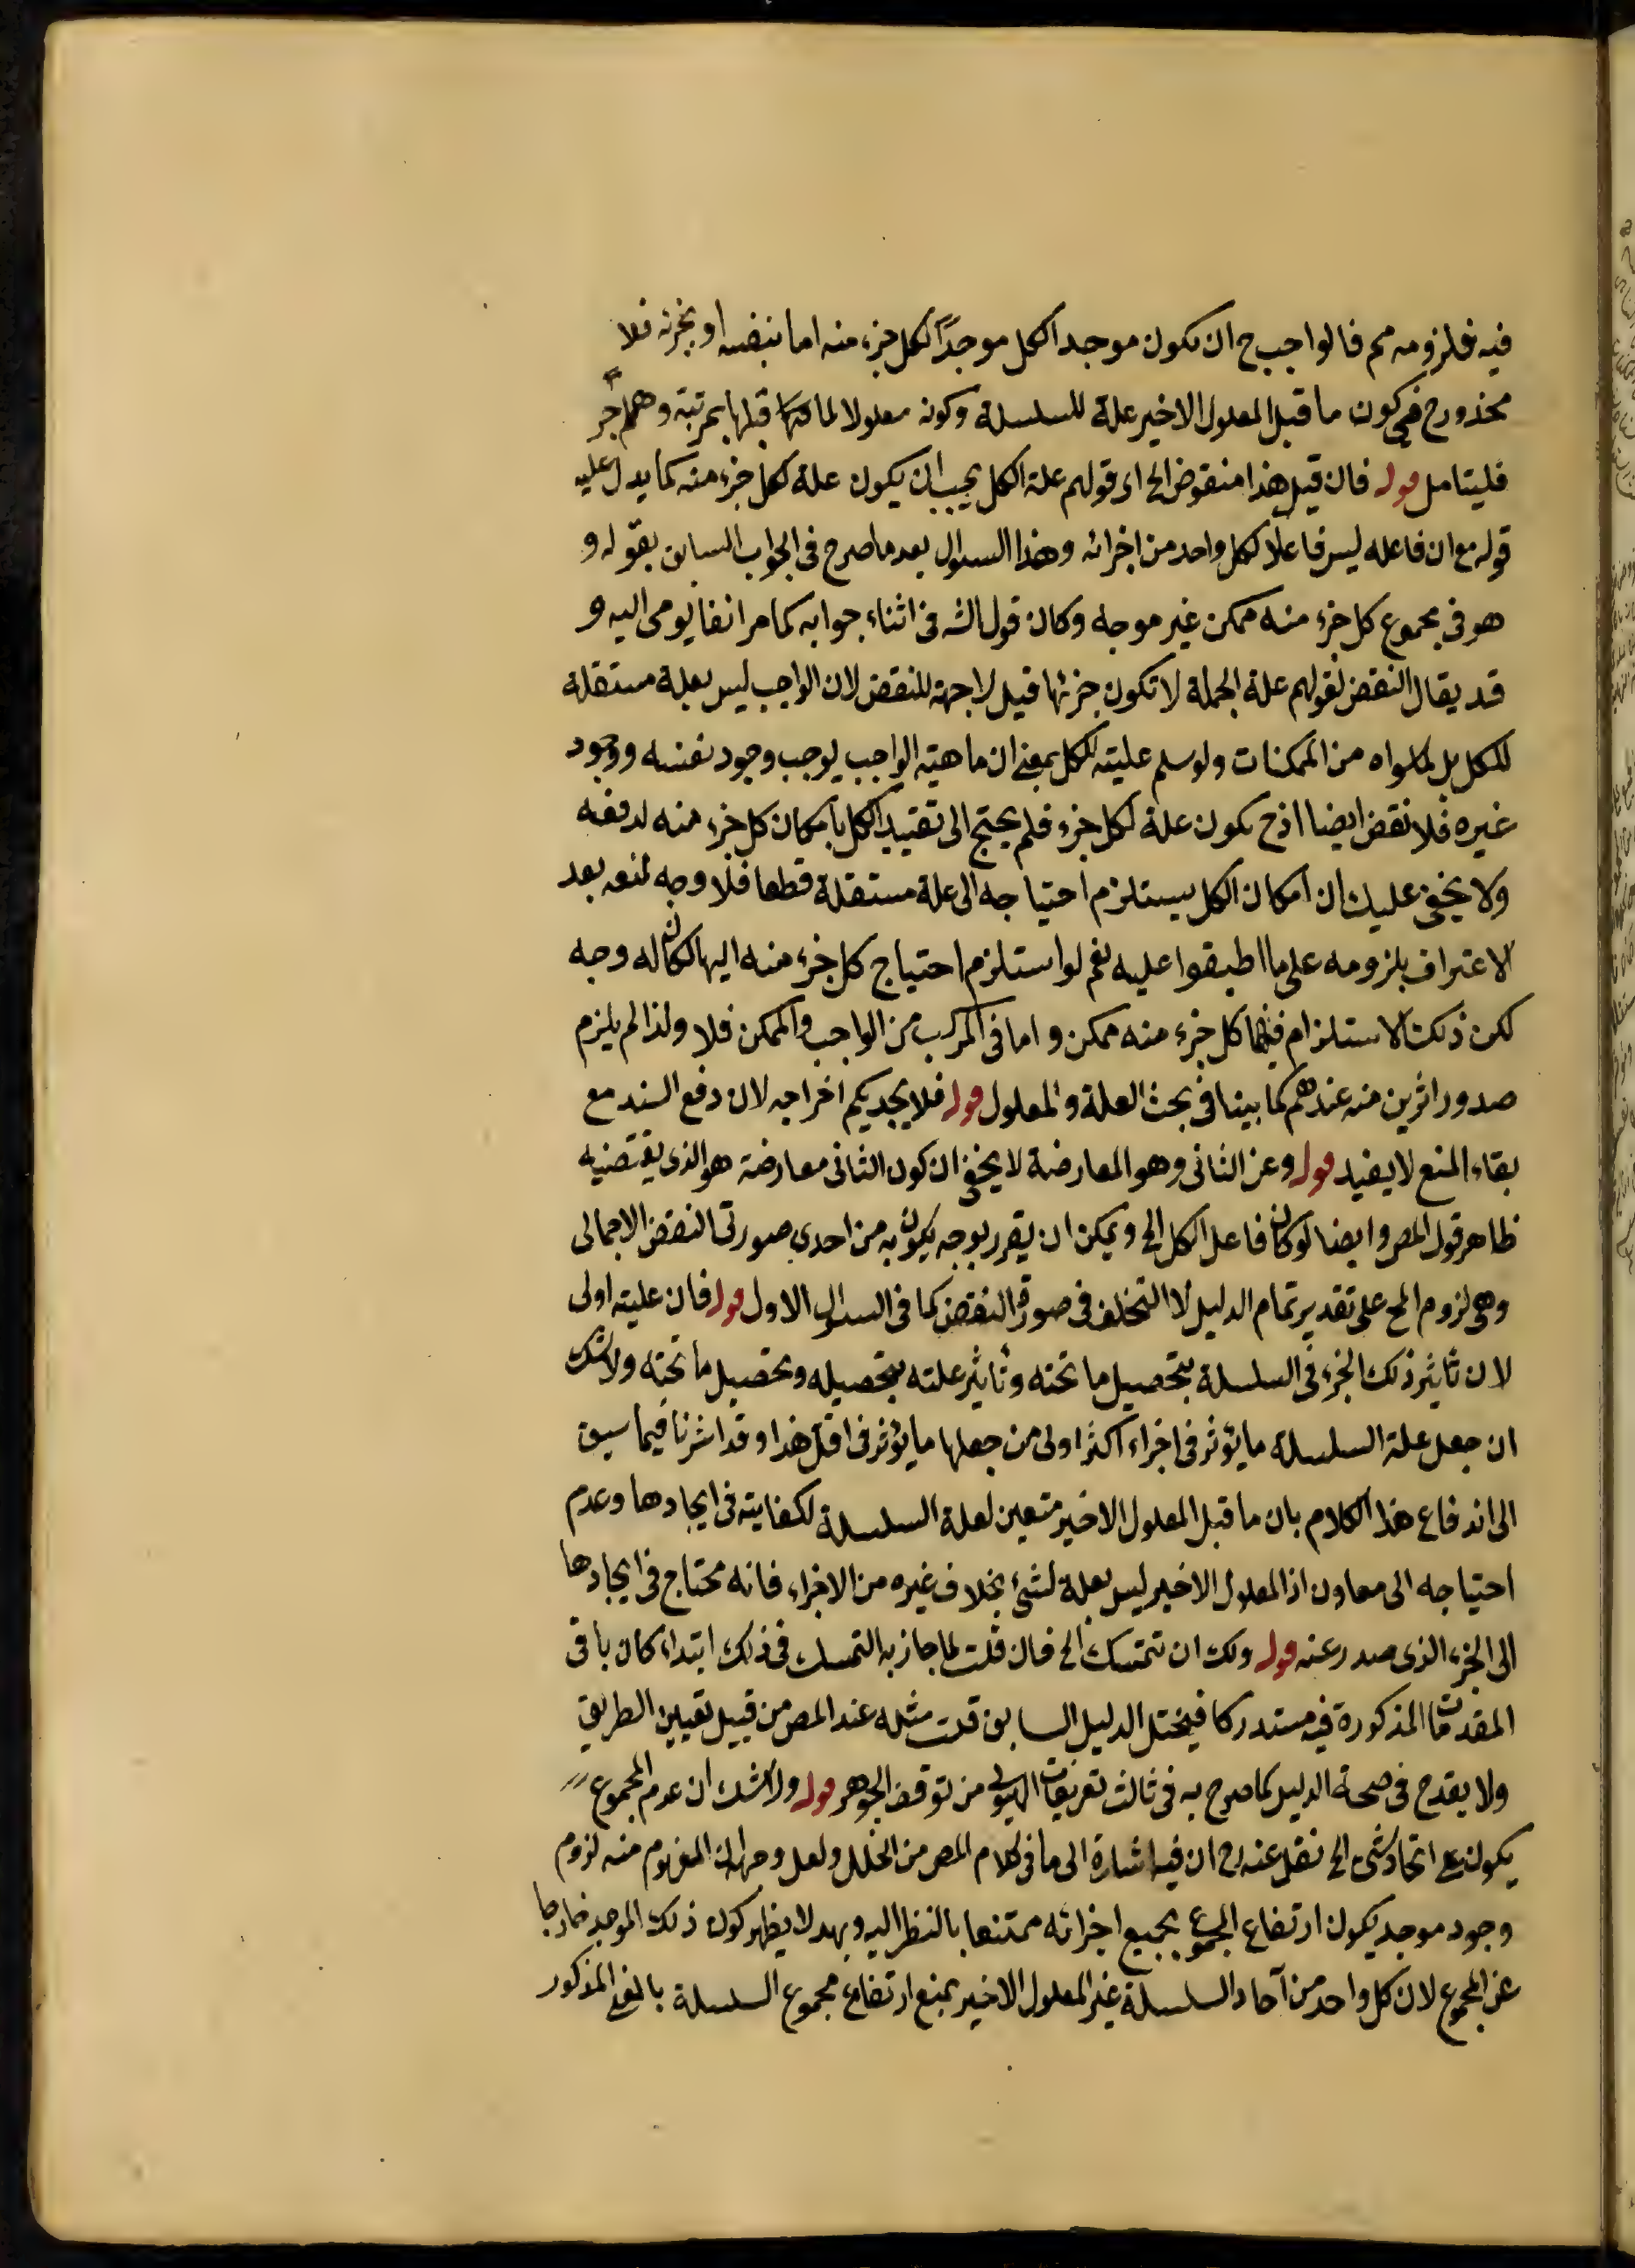 فيه فلزومه مم فالواجب ح ان يكون موجد الكل موجدًا لكل جزء منه اما بنفسه او بجزئه فلا
محذور ح في كون ما قبل المعلول الاخير علة للسلسلة وكونه معلولا لما قبلها بمرتبة وهلم جر
فليتامل قوله فان قيل هذا منقوض الخ اى قولهم علة الكل يجب ان يكون علة لكل جزء منه كما يدل عليه
قوله مع ان فاعله ليس فاعلا لكل واحد من اجزائه وهذا السؤال بعد ما صرح فى الجواب السابق بقوله و
هو فى مجموع كل جزء منه ممكن غير موجه وكان قول الش فى اثناء جوابه كما مر انفا يومى اليه و
قد يقال النقض لقولهم علة الجملة لا تكون جزئها قيل لا جهة للنقض لان الواجب ليس بعلة مستقلة
للكل بل لما سواه من الممكنات ولو سلم عليته للكل بمعنى ان ماهية الواجب يوجب وجود نفسه ووجود
غيره فلا نقض ايضا اذ ح يكون علة لكل جزء فلم يحتج الى تقييد الكل بامكان كل جزء منه لدفعه
ولا يخفى عليك ان امكان الكل يستلزم احتياجه الى علة مستقلة قطعا فلا وجه لمنعه بعد
الاعتراف بلزومه على ما اطبقوا عليه نعم لو استلزم احتياج كل جزء منه اليها لكان له وجه
لكن ذلك الاستلزام فيما كل جزء منه ممكن و اما فى المركب من الواجب والممكن فلا ولذا لم يلزم
صدور اثرين منه عندهم كما بينا فى بحث العلة والمعلول قوله فلا يجديكم اخراجه لان دفع السند مع
بقاء المنع لا يفيد قوله وعن الثانى وهو المعارضة لا يخفى ان كون الثانى معارضة هو الذى يقتضيه
ظاهر قول المص وايضا لو كان فاعل الكل الخ ويمكن ان يقرر بوجه يكون به من احدى صورتى النقض الاجمالى
وهى لزوم المح على تقدير تمام الدليل لا التخلف فى صورة النقض كما فى السؤال الاول قوله فان عليته اولى
لان تأثير ذلك الجزء فى السلسلة بتحصيل ما تحته وتأثير علته بتحصيله وتحصيل ما تحته ولا شك
ان جعل علة السلسلة ما يؤثر فى اجزاء اكثر اولى من جعلها ما يؤثر فى اقل هذا وقد اشرنا فيما سبق
الى اندفاع هذا الكلام بان ما قبل المعلول الاخير متعين لعلة السلسلة لكفايته فى ايجادها وعدم
احتياجه الى معاون اذ المعلول الاخير ليس بعلة لشئ بخلاف غيره من الاجزاء فانه محتاج فى ايجادها
الى الجزء الذى صدر عنه قوله ولك ان تتمسك الخ فان قلت لما جاز به التمسك فى ذلك ابتداء كان باقى
المقدمات المذكورة فيه مستدركا فيختل الدليل السابق قلت مثله عند المص من قبيل تعيين الطريق
ولا يقدح فى صحة الدليل كما صرح به فى ثالث تعريفات الهيولى من توقف الجوهر قوله ولا شك ان عدم المجموع
يكون مع اتحاد شئ الخ نقل عنه رح ان فيه اشارة الى ما فى كلام المص من الخلل ولعل وجهه ان المفهوم منه لزوم
وجود موجد يكون ارتفاع المجموع بجميع اجزائه ممتنعا بالنظر اليه وبهذا لا يظهر كون ذلك الموجد خارجا
عن المجموع لان كل واحد من آحاد السلسلة غير المعلول الاخير يمنع ارتفاع مجموع السلسلة بالمعنى المذكور